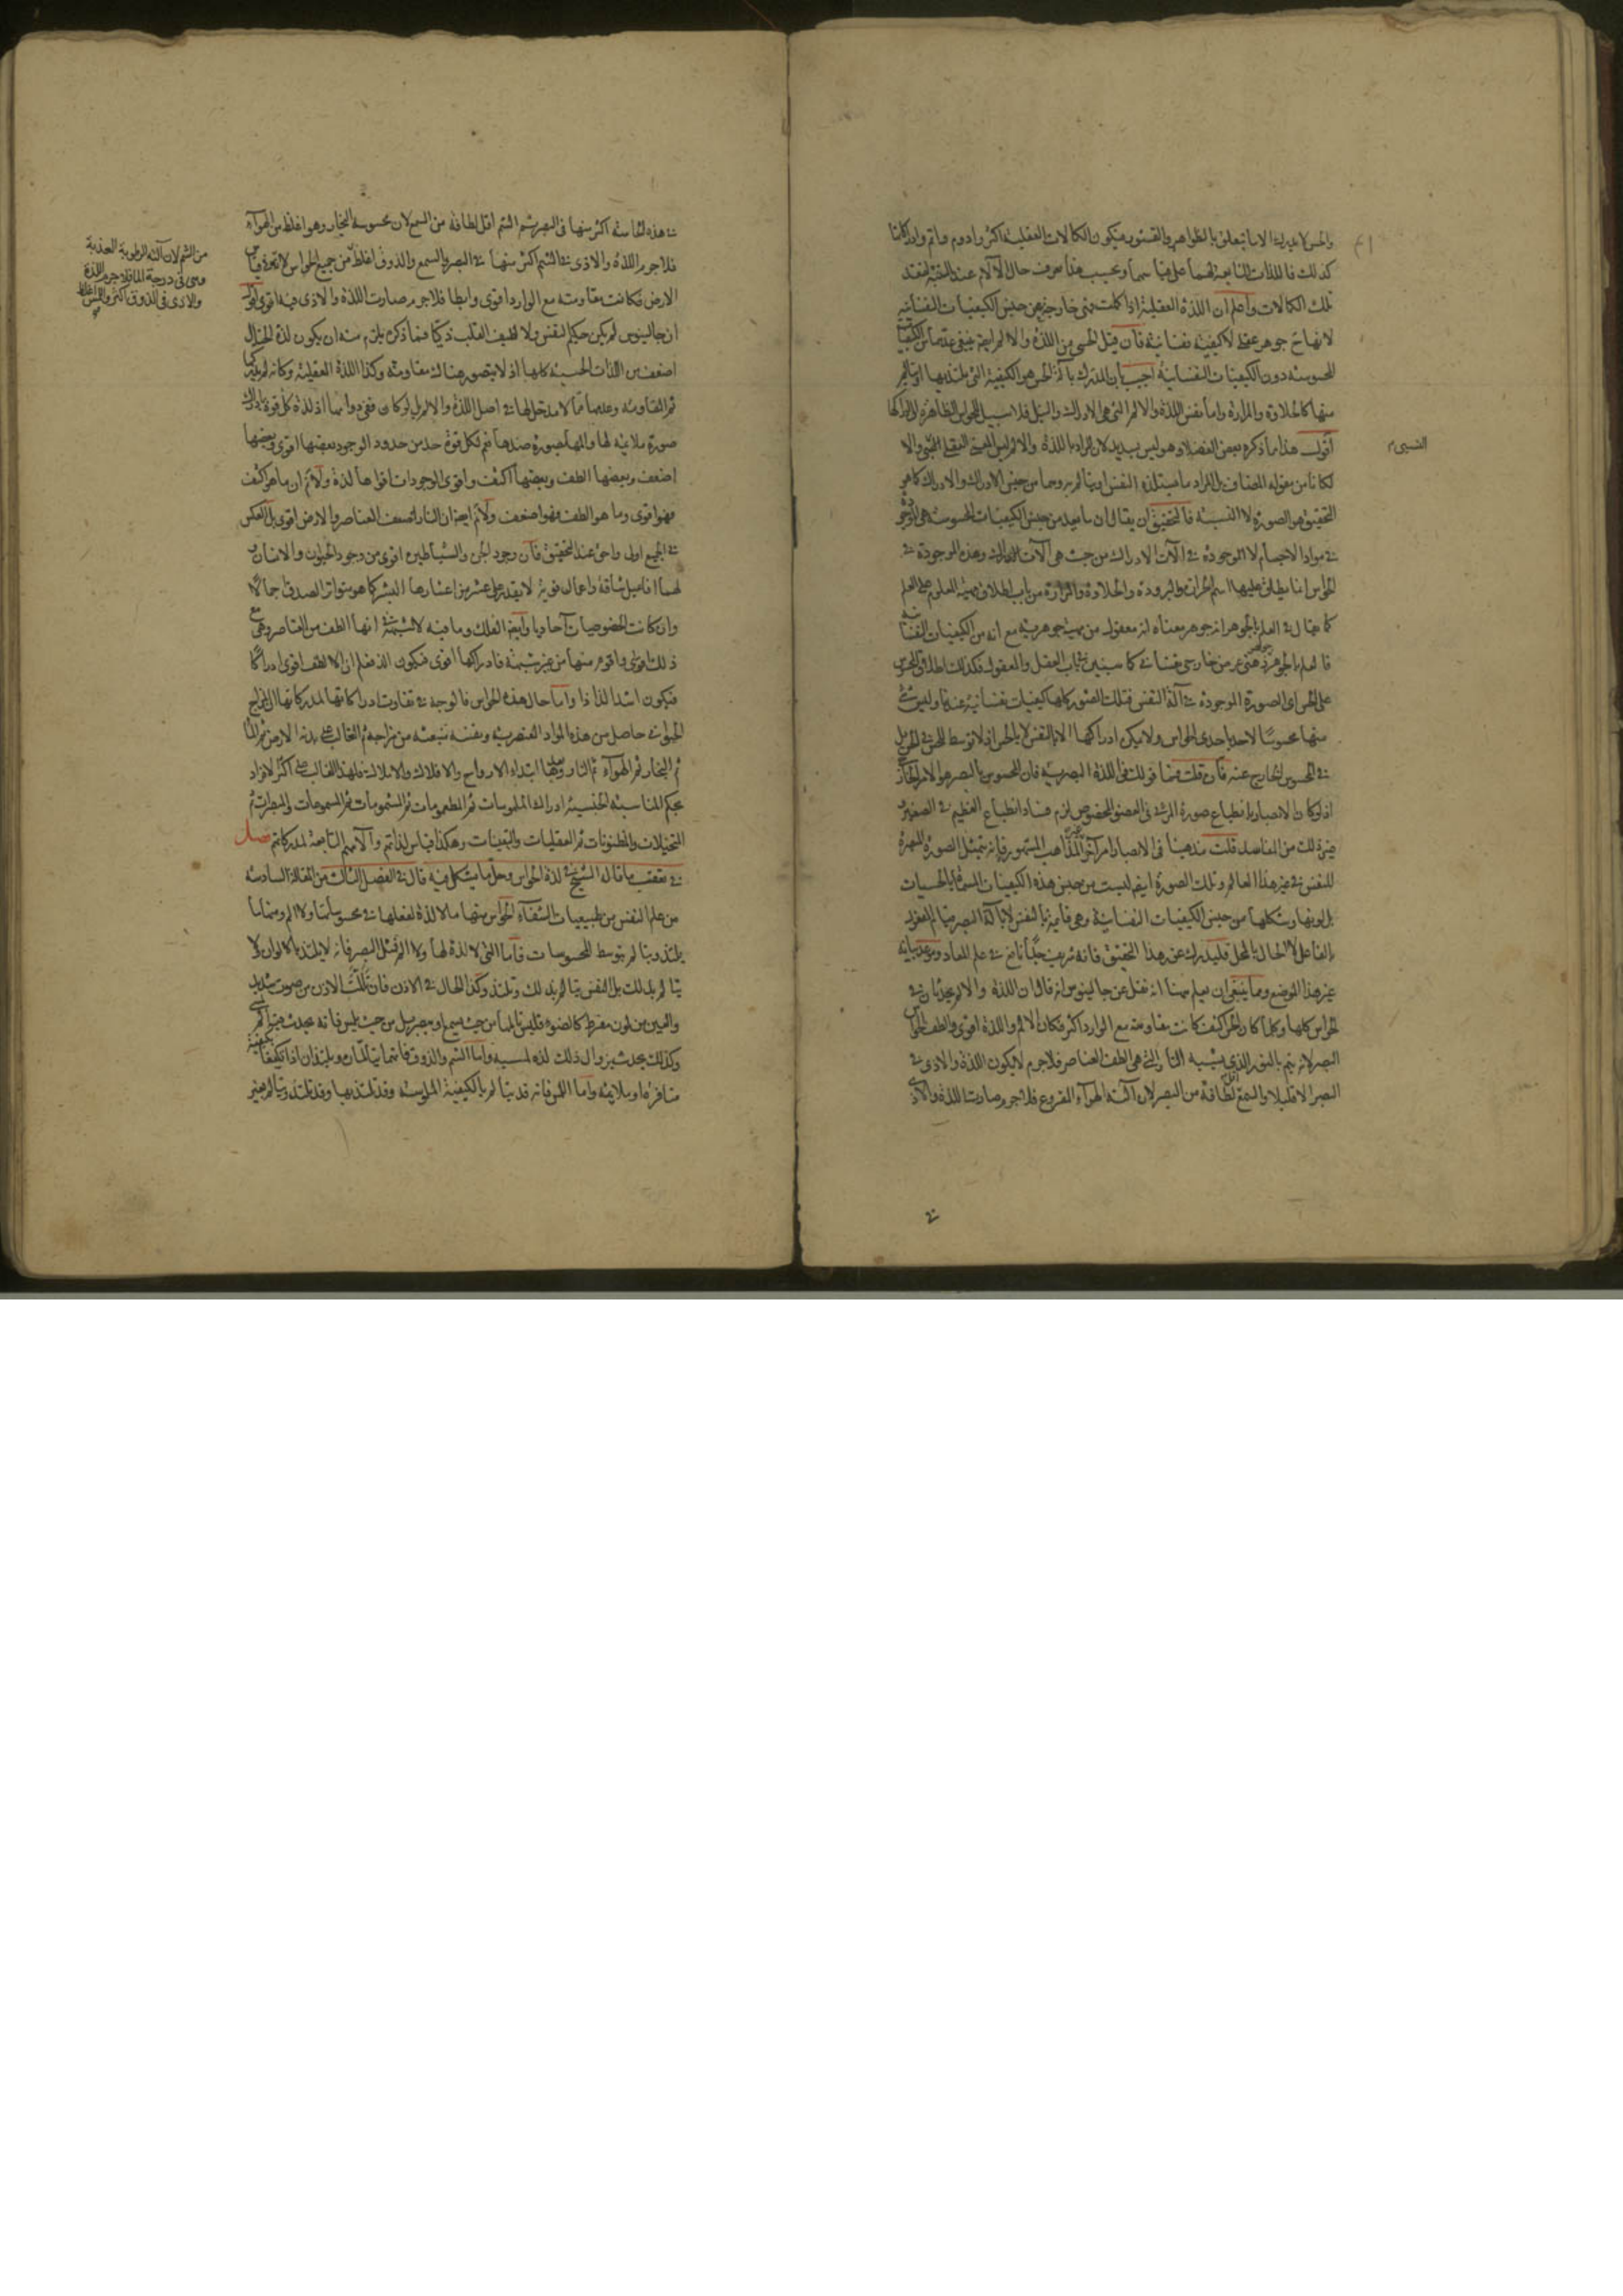 والحس لا يدرك الا ما يتعلق بالظواهر والقشور فيكون الكمالات العقلية اكثر وادوم واتم وادراكاتنا
كذلك فاللذات التابعة لهما على قياسهما وبحسب هذا يعرف حال الآلام عند التنبه لفقد
تلك الكمالات واعلم ان اللذة العقلية اذا كملت فهي خارجة عن جنس الكيفيات النفسانية
لانها ح جوهر عقلي لا كيفية نفسانية فان قيل الحسي من اللذة والالم ايضا ينبغي عدهما من الكيفيات
المحسوسة دون الكيفيات النفسانية اجيب بان المدرك بآلة الحس هو الكيفية التي يلتذ بها او يتألم
منها كالحلاوة والمرارة واما نفس اللذة والالم التي هي الادراك والنيل فلا سبيل للحواس الظاهرة الى ادراكها
اقول هذا ما ذكره بعض الفضلاء وهو ليس بسديد لان المراد باللذة والالم ليس المعنى العقلي النسبي والا
لكانا من مقولة المضاف بل المراد ما به يلتذ النفس او يتألم به وهما من جنس الادراك والادراك كما هو
التحقيق هو الصورة لا النسبة فالتحقيق ان يقال ان ما يعد من جنس الكيفيات المحسوسة هي الموجودة
في مواد الاجسام لا الموجودة في آلات الادراك من حيث هي آلات الادراك وهذه الموجودة في
الحواس انما يطلق عليها اسم الحرارة والبرودة والحلاوة والمرارة من باب اطلاق مهية المعلوم على العلم
كما يقال في العلم بالجوهر انه جوهر معناه انه معقول من مهية جوهرية مع انه من الكيفيات النفسانية
فالعلم بالجوهر جوهر ذهني عرض خارجي نفساني كما سيبين في باب العقل والمعقول فكذلك اطلاق المحسوس
على الحس اي الصورة الموجودة في آلة النفس فتلك الصور كلها كيفيات نفسانية عندنا وليس شيء
منها محسوسا لاحد باحدى الحواس ولا يمكن ادراكها الا بالنفس لا بالحس اذ لا توسط للحس في الحس بل
في المحسوس الخارج عنه فان قلت فما قولك في اللذة البصرية فان المحسوس بالبصر هو الامر الخارج
اذ لو كان الابصار بانطباع صورة المرئي في العضو المخصوص لزم فساد انطباع العظيم في الصغير و
غير ذلك من المفاسد قلت مذهبنا في الابصار امر آخر غير المذاهب المشهورة فانه بتمثل الصورة المبصرة
للنفس في غير هذا العالم وتلك الصورة ايضا ليست من جنس هذه الكيفيات المسماة بالحسيات
بل لونها وشكلها من جنس الكيفيات النفسانية وهي قائمة بالنفس لا بآلة البصر قيام المفعول
بالفاعل لا الحال بالمحل فليدرك غور هذا التحقيق فانه شريف جدا نافع في علم المعاد وموعد بيانه
غير هذا الموضع ومما ينبغي ان يعلم ههنا انه نقل عن جالينوس انه قال ان اللذة والالم يحدثان في
الحواس كلها وكلما كان الحس اكثف كانت مقاومته مع الوارد اكثر فكان الالم واللذة اقوى والطف الحواس
البصر لانه يتم بالنور الذي يشبه النار التي هي الطف العناصر فلا جرم لا يكون اللذة والاذى في
البصر الا قليلا والسمع اقل لطافة من البصر لان آلته الهواء المقروع فلا جرم صارت اللذة والاذى
في
النسبي م
في هذه الحاسة اكثر منها في البصر ثم الشم اقل لطافة من السمع لان محسوسه البخار وهو اغلظ من الهواء
فلا جرم اللذة والاذى في الشم اكثر منها في البصر والسمع والذوق اغلظ من جميع الحواس لانه في قياس
الارض فكانت مقاومته مع الوارد اقوى وابطأ فلا جرم صارت اللذة والاذى فيه اقوى اقول
ان جالينوس لم يكن حكيم النفس ولا لطيف القلب ذكيا فما ذكره يلزم منه ان يكون لذة الخيال
اضعف من اللذات الحسية كلها اذ لا يتصور هناك مقاومة وكذا اللذة العقلية وكانه لم يدر
ثم المقاومة وعدمها مما لا مدخل لها في اصل اللذة والالم بل لو كان ففي دوامها اذ لذة كل قوة بادراك
صورة ملايمة لها والمها بصورة ضدها نعم لكل قوة حد من حدود الوجود بعضها اقوى وبعضها
اضعف وبعضها الطف وبعضها اكثف واقوى الوجودات اقواها لذة ولا نم ان ما هو اكثف
فهو اقوى وما هو الطف فهو اضعف ولا نم ايضا ان النار اضعف العناصر والارض اقوى بل العكس
في الجميع اولى واحق عند التحقيق فان وجود الجن والشياطين اقوى من وجود الحيوان والانسان و
لهما افاعيل شاقة واعمال قوية لا يقدر على عشر من اعشارها البشر كما هو متواتر الصدق اجمالا
وان كانت الخصوصيات آحاديا وايضا الفلك وما فيه لا شبهة في انها الطف من العناصر وهي مع
ذلك اقوى واقوم منها من غير شبهة فادراكها اقوى فيكون الذ فعلم ان الالطف اقوى ادراكا
فيكون اشد الذاذا واما حال هذه الحواس فالوجه في تفاوت ادراكاتها لمدركاتها ان المزاج
الحيواني حاصل من هذه المواد العنصرية ونفسه منبعثة من مزاجه ثم الغالب على بدنه الارض ثم الماء
ثم البخار ثم الهواء ثم النار وهنا ابتداء الارواح والافلاك والاملاك فلهذا الغالب على اكثر الافراد
بحكم المناسبة الجنسية ادراك الملموسات ثم المطعومات ثم المشمومات ثم المسموعات والمبصرات ثم
التخيلات والمظنونات ثم العقليات واليقينيات وهكذا قياس لذاتهم وآلامهم التابعة لمدركاتهم فصل
في تعقيب ما قاله الشيخ في لذة الحواس وحل ما يشكل فيه قال في الفصل الثالث من المقالة السادسة
من علم النفس من طبيعيات الشفاء الحواس منها ما لا لذة لفعلها في محسوساتها ولا الم ومنها ما
يلتذ ويتألم بتوسط المحسوسات فاما التي لا لذة لها ولا الم فمثل البصر فانه لا يلتذ بالالوان ولا
يتألم بذلك بل النفس يتألم بذلك وتلتذ وكذا الحال في الاذن فان تألمت الاذن من صوت شديد
والعين من لون مفرط كالضوء فليس تألمها من حيث يسمع او يبصر بل من حيث يلمس فانه يحدث فيه الم لمسي
وكذلك يحدث بزوال ذلك لذة لمسية واما الشم والذوق فانهما يتألمان ويلتذان اذا تكيفا بكيفية
منافرة او ملايمة واما اللمس فانه قد يتألم بالكيفية الملموسة وقد يلتذ بها وقد يلتذ ويتألم بغير
من الشم لان آلته الرطوبة العذبة
وهي في درجة الماء فلا جرم اللذة
والاذى في الذوق اكثر واللمس اغلظ